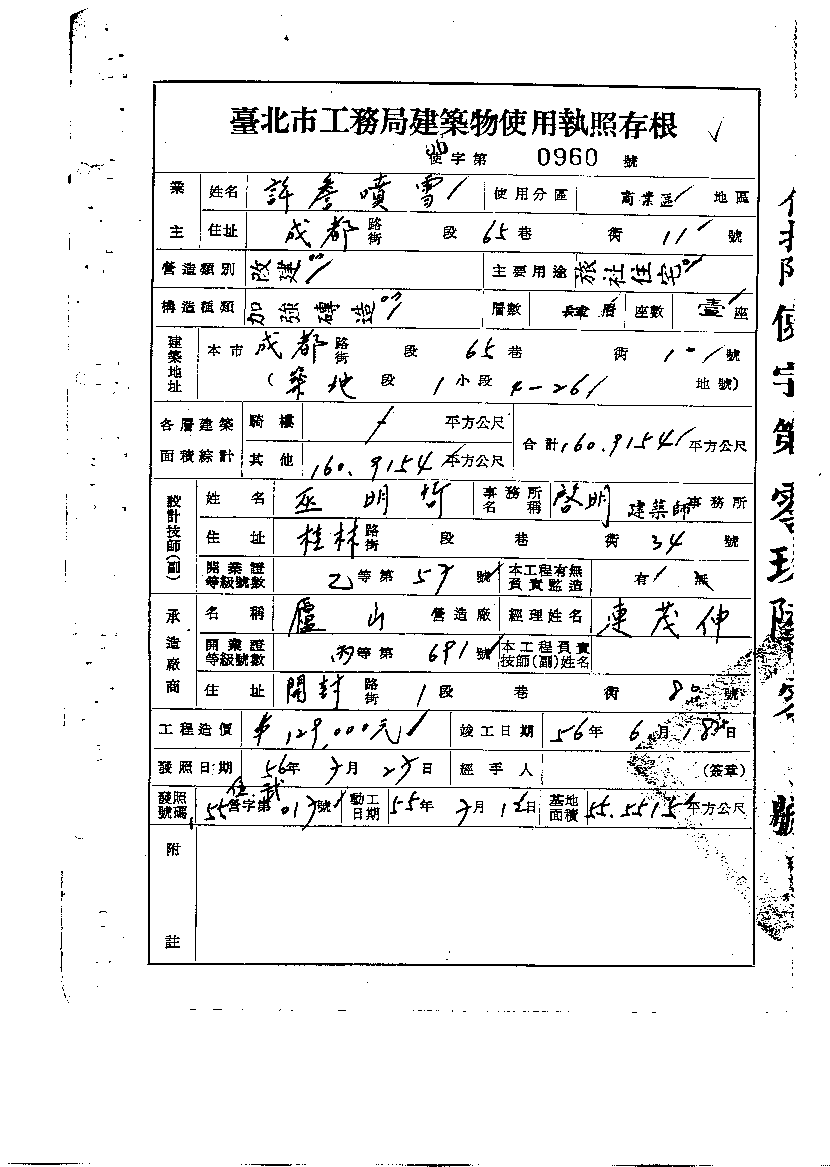 臺北市工務局建築物使用執照存根
使字第 0960 號
業主 姓名 許詹噴雪 使用分區 商業區 地區
住址 成都 路街 段 65巷 街 11 號
營造類別 改建 主要用途 旅社住宅
構造種類 加強磚造 層數 層 座數 座
建築地址 本市 成都 路街 段 65巷 街 號
(築地 段 1小段 4-26 地號)
各層建築面積綜計 騎樓 平方公尺 合計 160.9154 平方公尺
其他 160.9154 平方公尺
設計技師(副) 姓名 巫明哲 事務所名稱 啓明 建築師事務所
住址 桂林 路街 段 巷 街 34 號
開業證等級號數 乙等第 57 號 本工程有無負責監造 有 無
承造廠商 名稱 廬山 營造廠 經理姓名 連茂仲
開業證等級號數 丙等第 691 號 本工程負責技師(副)姓名
住址 開封 路街 1段 巷 街 號
工程造價 129,000元 竣工日期 56年 6月 18日
發照日期 56年 7月 27日 經手人 (簽章)
發照號碼 55營字第 017號 動工日期 55年 7月 日 基地面積 55.5515 平方公尺
附註